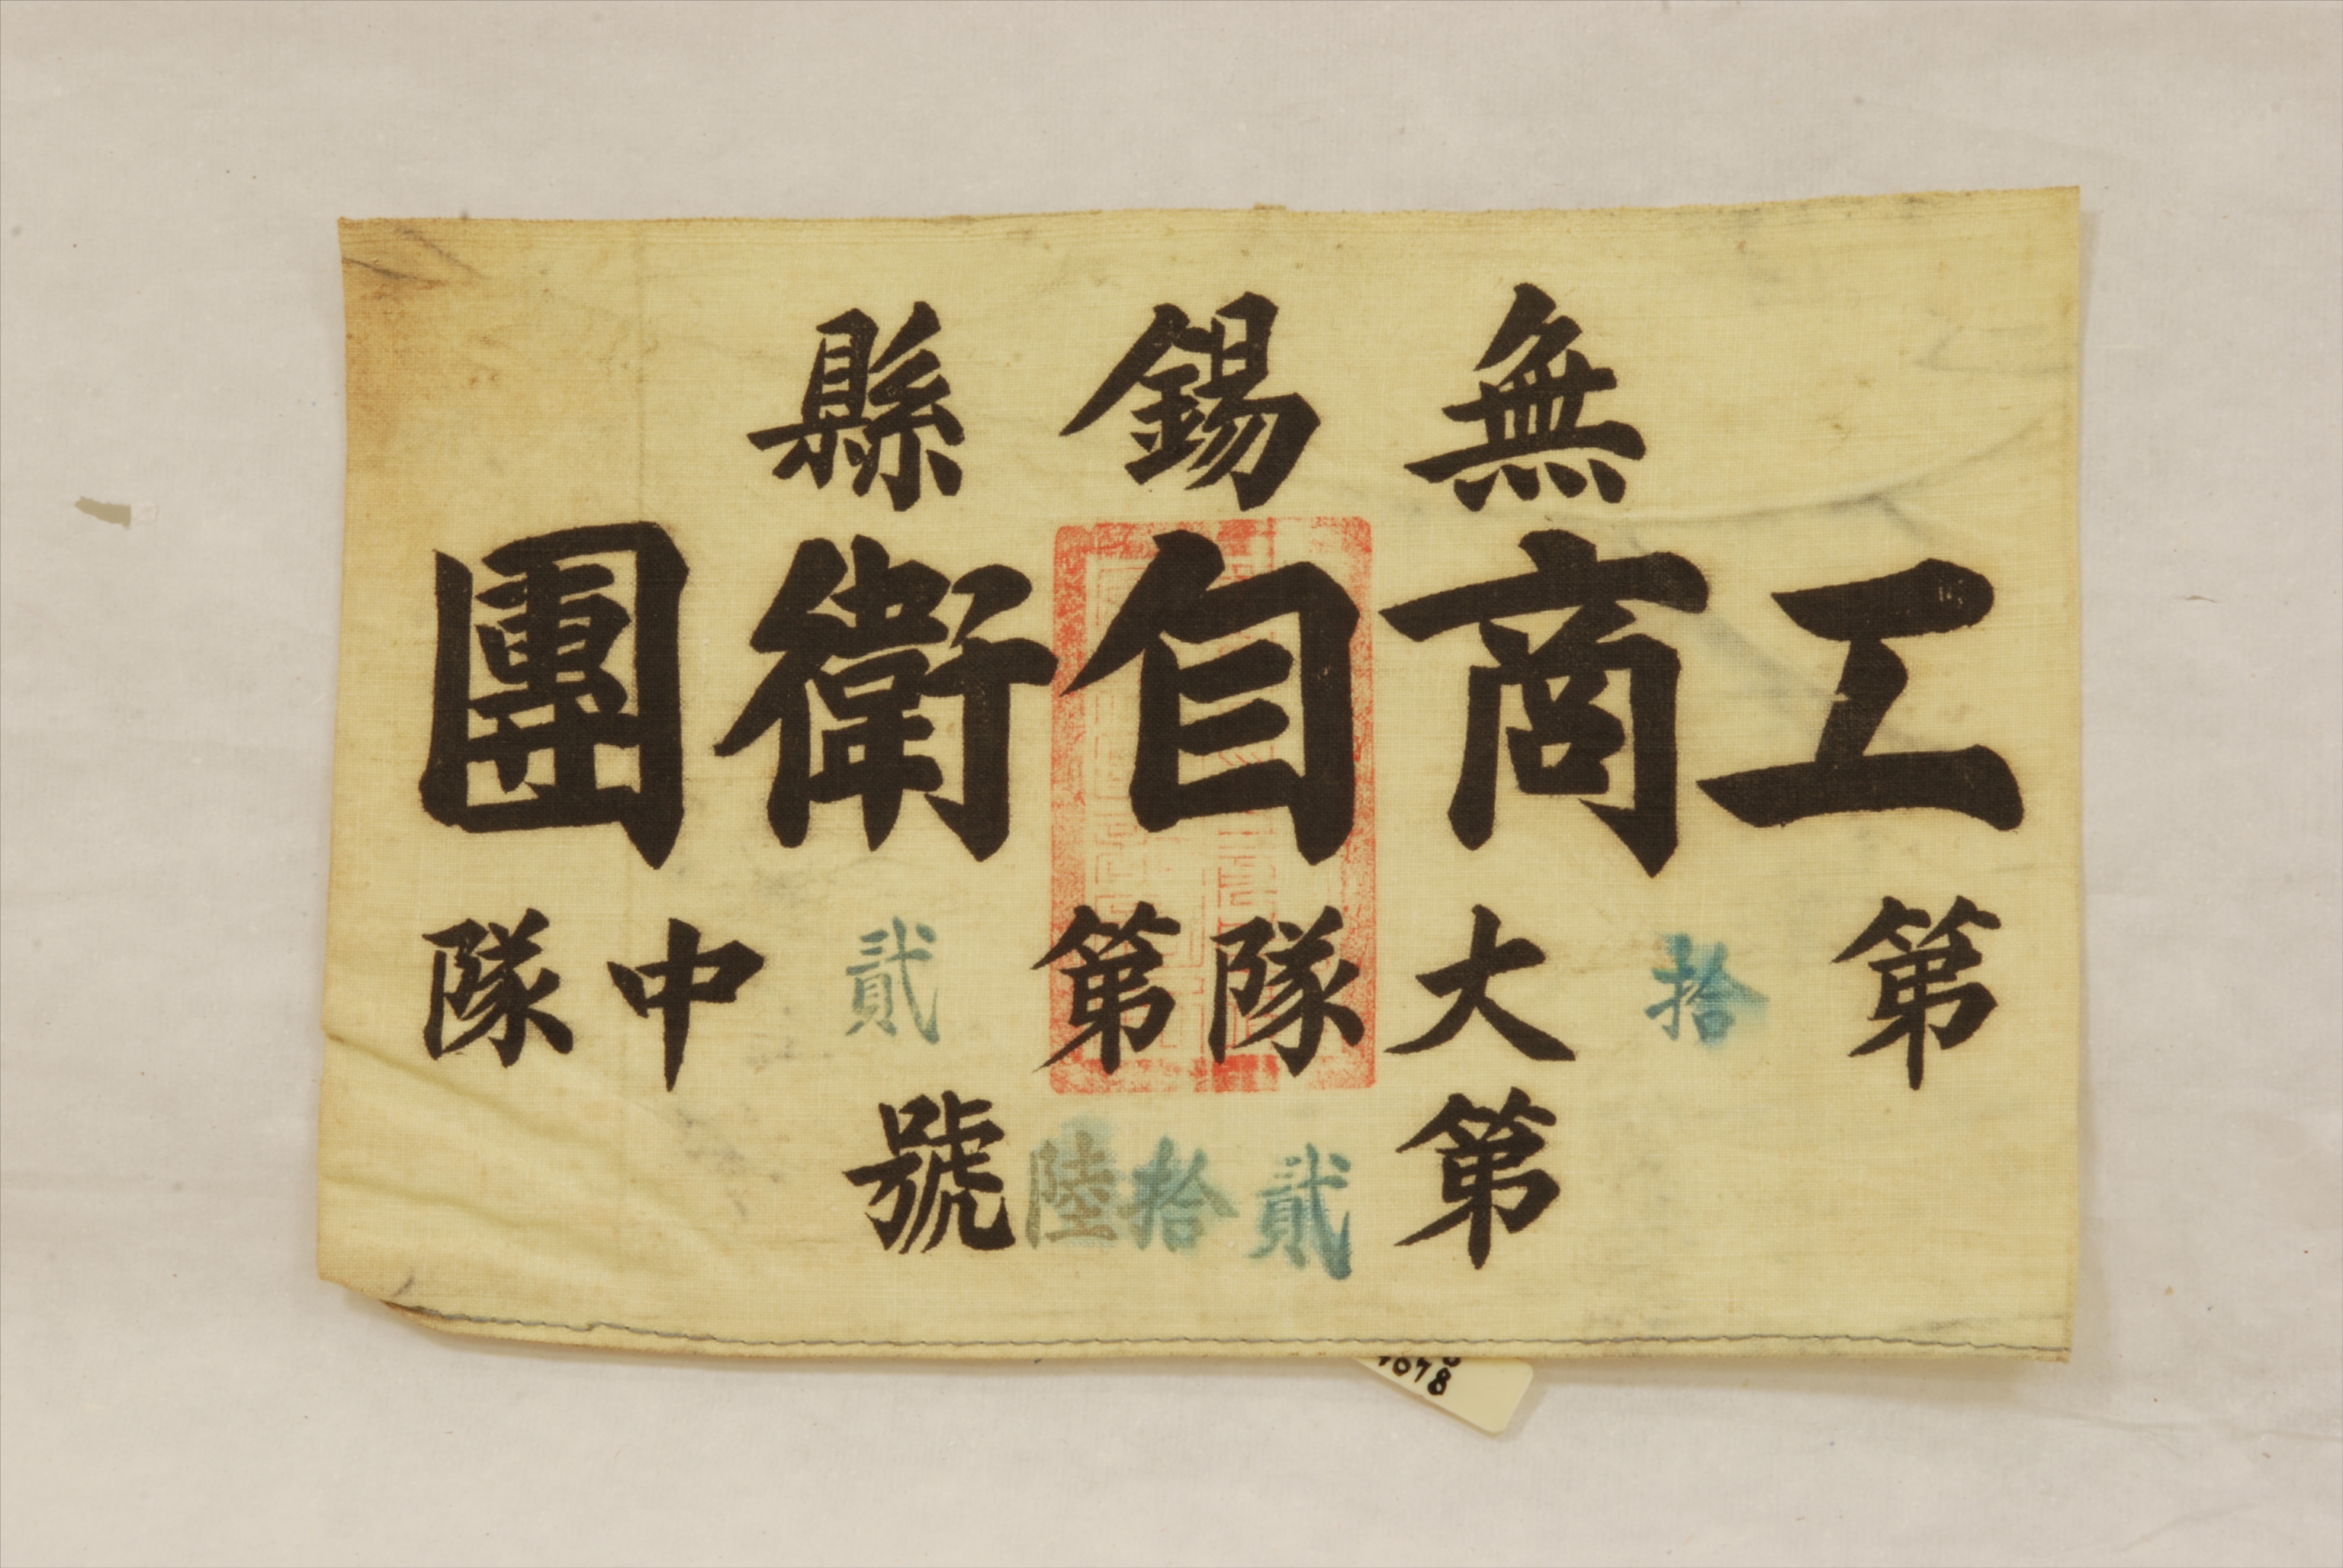 無錫縣
工商自衛團
第拾大隊第貳中隊
第貳拾陸號
678